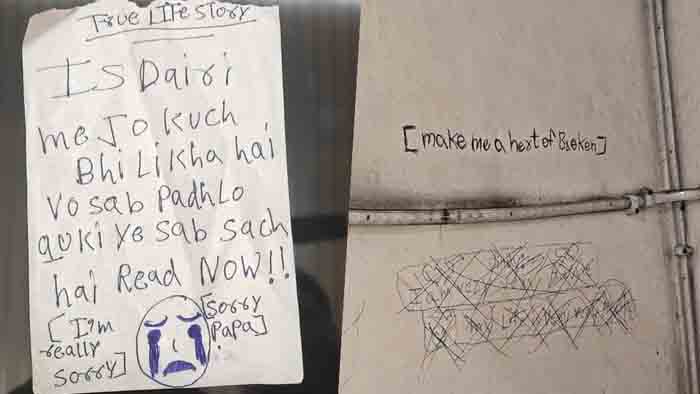 True LIFE Story
IS Dairi
me Jo kuch
Bhi Likha hai
Vo sab Padhlo
quki ye sab sach
hai Read NOW!!
[I'm
really
sorry]
[Sorry
Papa]
[make me a hert of Broken]